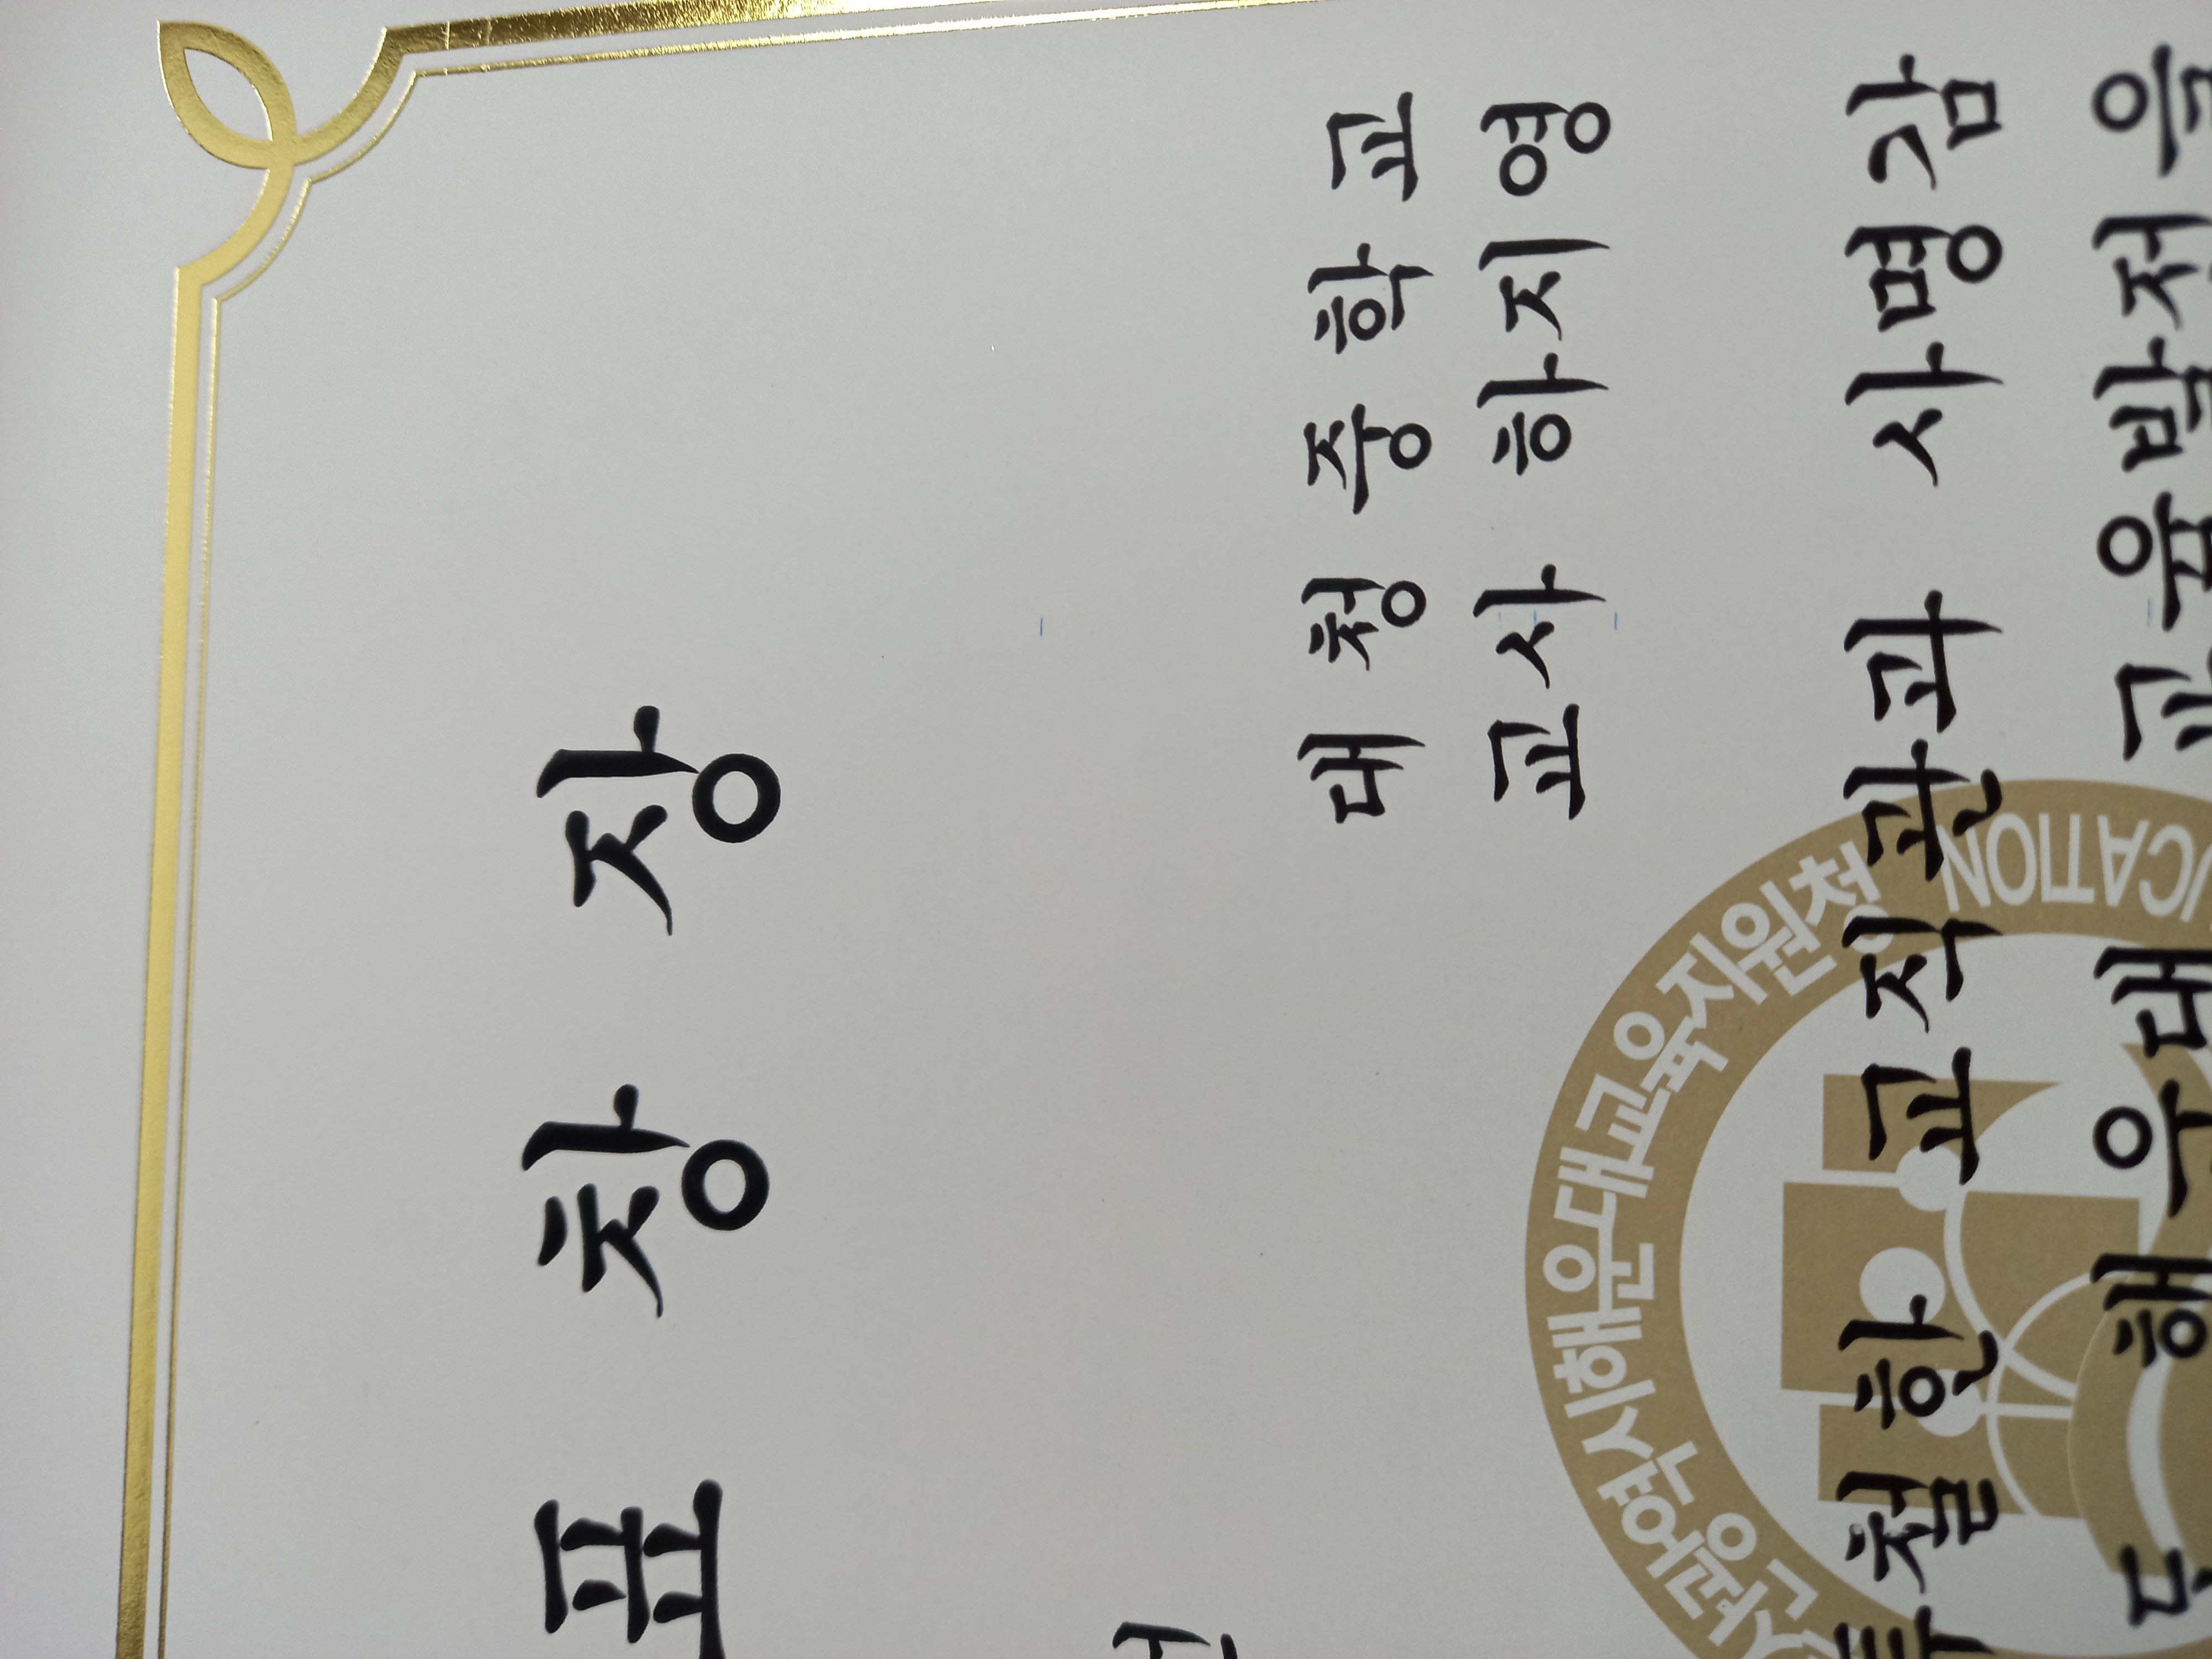 표 창 장
대 청 중 학 교
교사 하지영
철한 교직관과 사명감
해운대 교육발전을
광역시해운대교육지원청